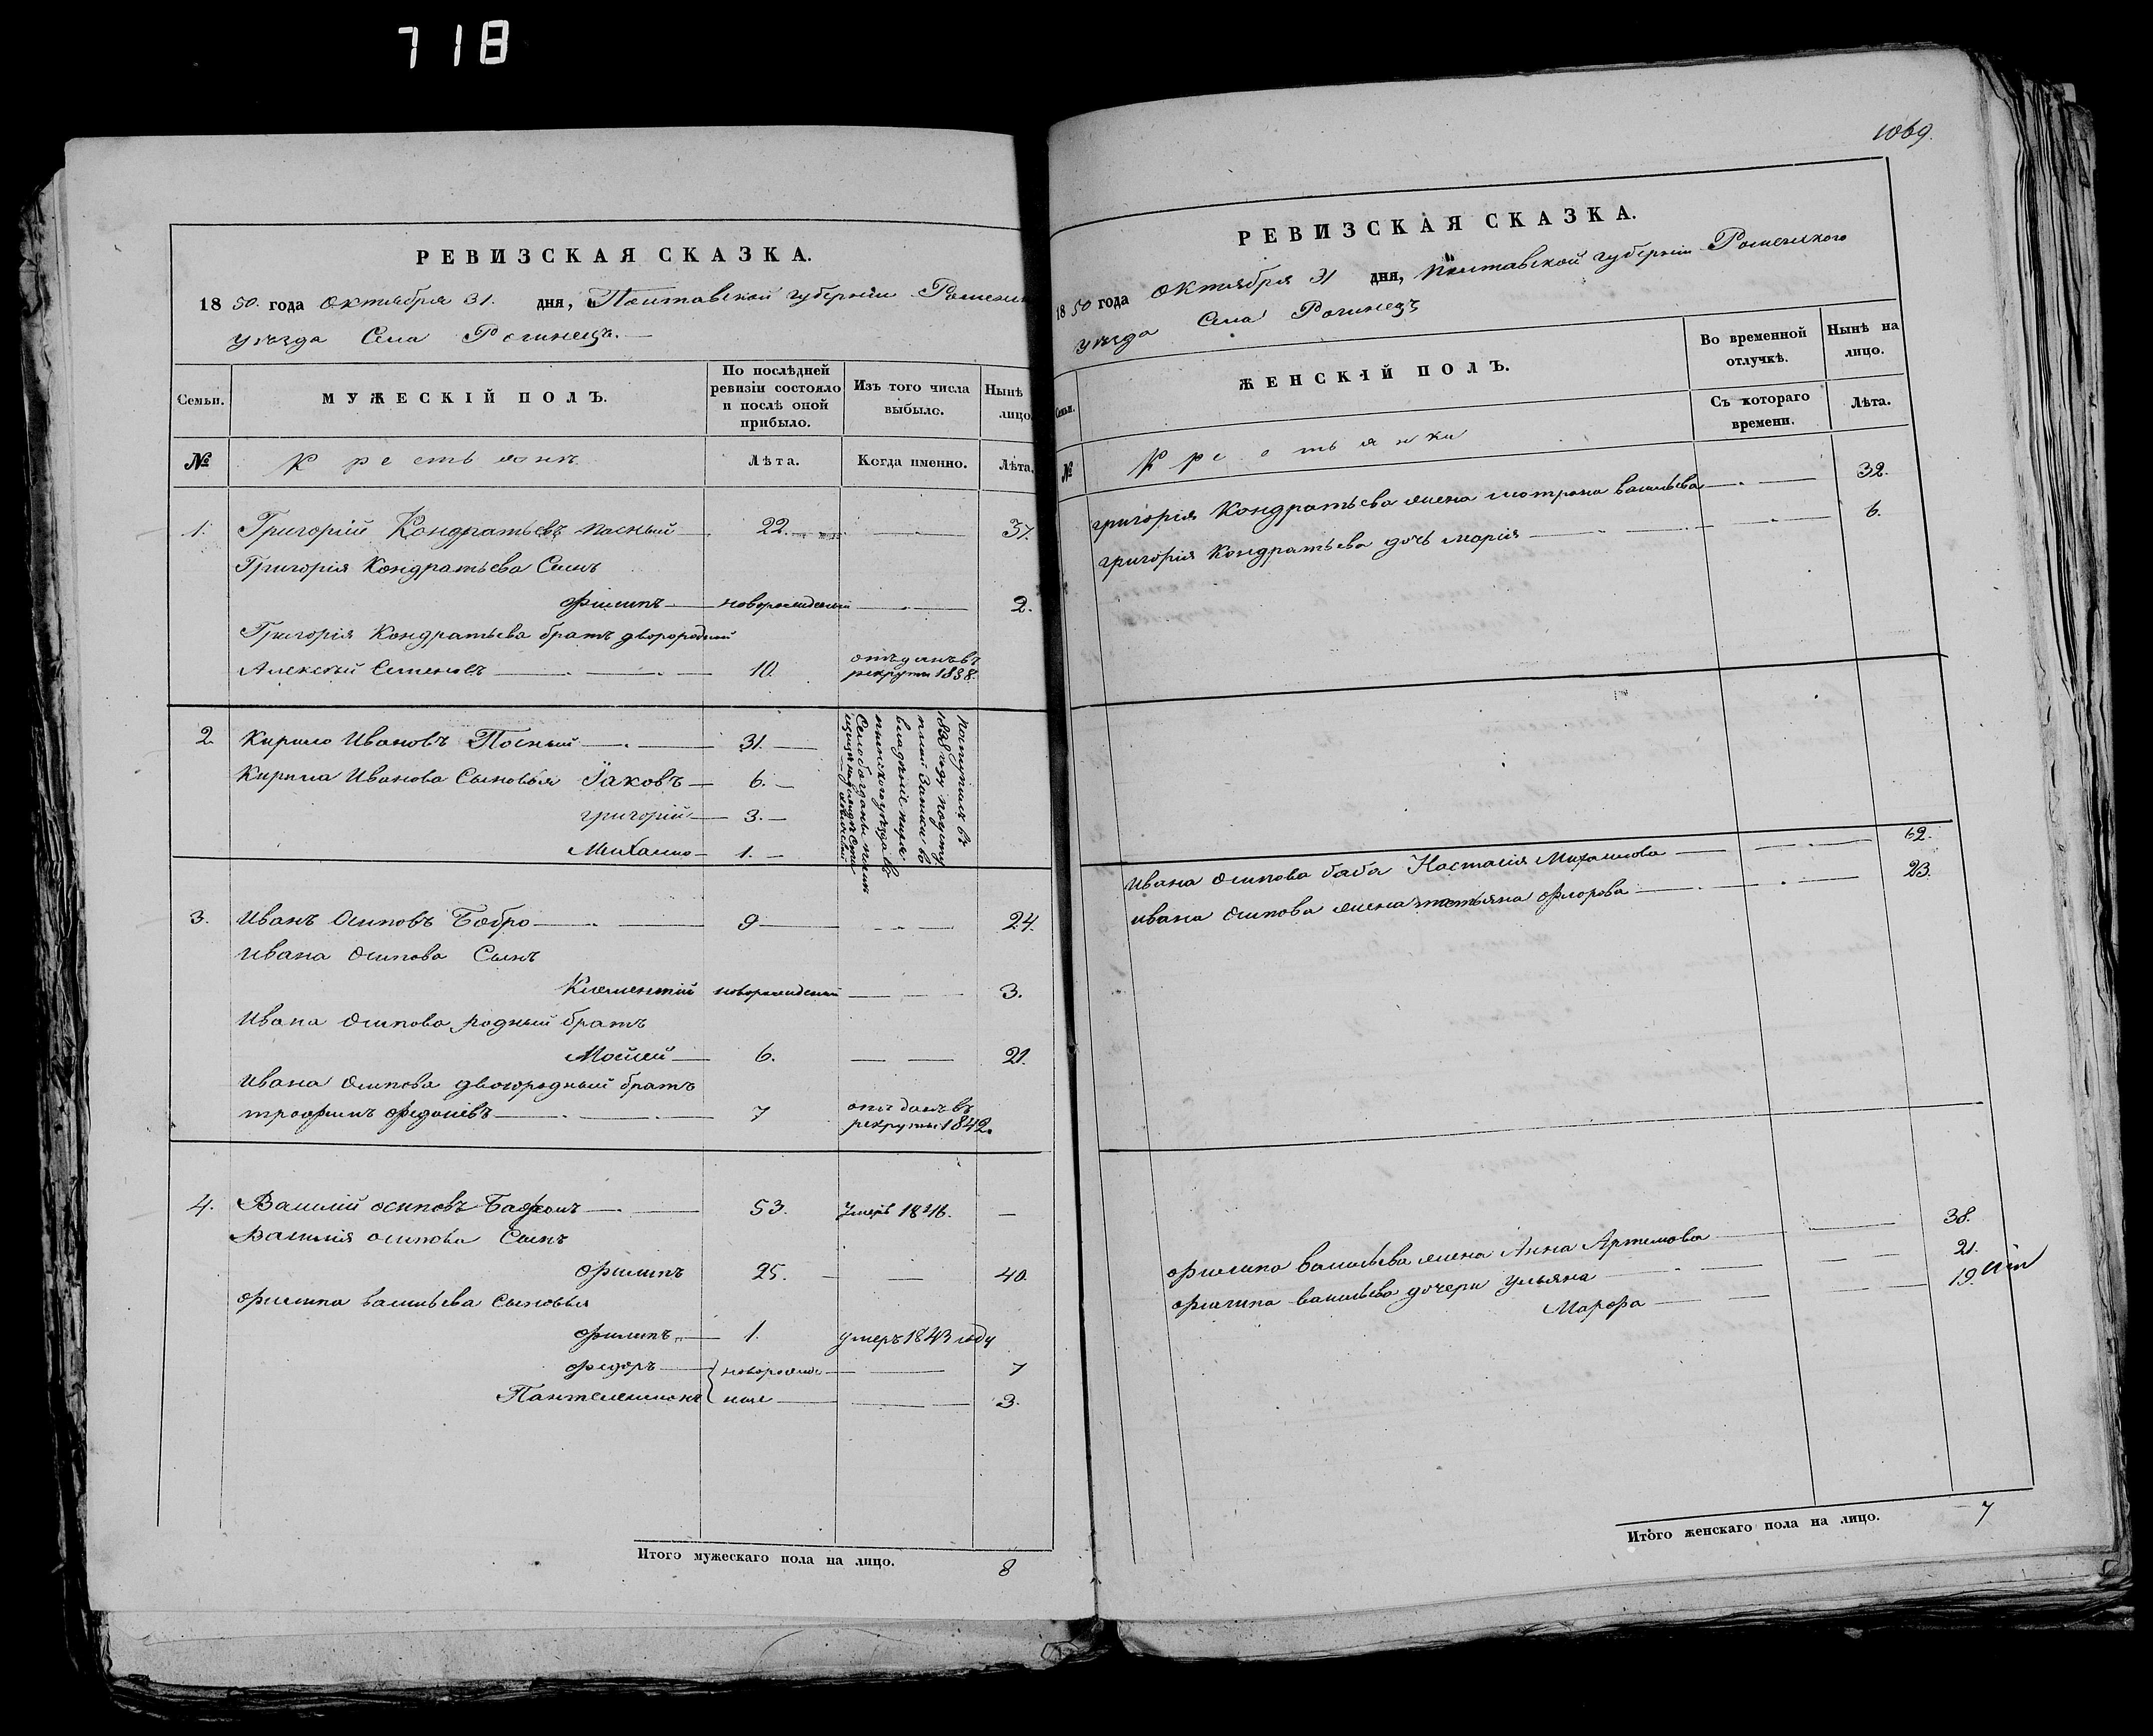 718
РЕВИЗСКАЯ СКАЗКА.
1850. года Октября 31. дня, Полтавской губерніи Роменск
уѣзда Села Рогинецъ.
Семьи.
МУЖЕСКІЙ ПОЛЪ.
По послѣдней ревизіи состояло и послѣ оной прибыло.
Изъ того числа выбыло.
Нынѣ лицо
№
Крестьянъ
Лѣта.
Когда именно.
Лѣта.
1. Григорій Кондратьевъ Посный 22. 37.
Григорія Кондратьева Сынъ
Филипъ новорожденный 2.
Григорія Кондратьева братъ двоюродный
Алексѣй Семеновъ 10. отданъ въ рекруты 1838.
2. Кирило Ивановъ Посный 31.
Кирила Иванова Сыновья Яковъ 6.
григорій 3.
Михайло 1.
Поступилъ въ
1848 году
владѣніе
3. Иванъ Осиповъ Бобро 9 24.
Ивана Осипова Сынъ
Клементій новорожденный 3.
Ивана Осипова родный братъ
Мойсей 6. 21.
Ивана Осипова двоюродный братъ
трофимъ 7 отданъ въ рекруты 1842.
4. Василій осиповъ 53. Умеръ 1846.
Василія осипова Сынъ
Филипъ 25. 40.
Филипа Васильева Сыновья
Филипъ 1. умеръ 1843 году
Федоръ новорожде 7
Пантелеимонъ ные 3.
Итого мужескаго пола на лицо. 8
1069.
РЕВИЗСКАЯ СКАЗКА.
1850 года Октября 31 дня, Полтавской губерніи Роменского
уѣзда Села Рогинецъ
Семьи.
ЖЕНСКІЙ ПОЛЪ.
Во временной отлучкѣ.
Нынѣ на лицо.
Съ котораго времени.
Лѣта.
№
Крестьянки
григорія Кондратьева жена мотрона васильева 32.
григорія Кондратьева дочь марія 6.
Ивана Осипова баба Настасія Михайлова 62.
ивана Осипова жена татьяна Флорова 23.
Филипа Васильева жена Анна Артемова 38.
Филипа васильева дочери Ульяна 21.
Марфа 19.
Итого женскаго пола на лицо. 7